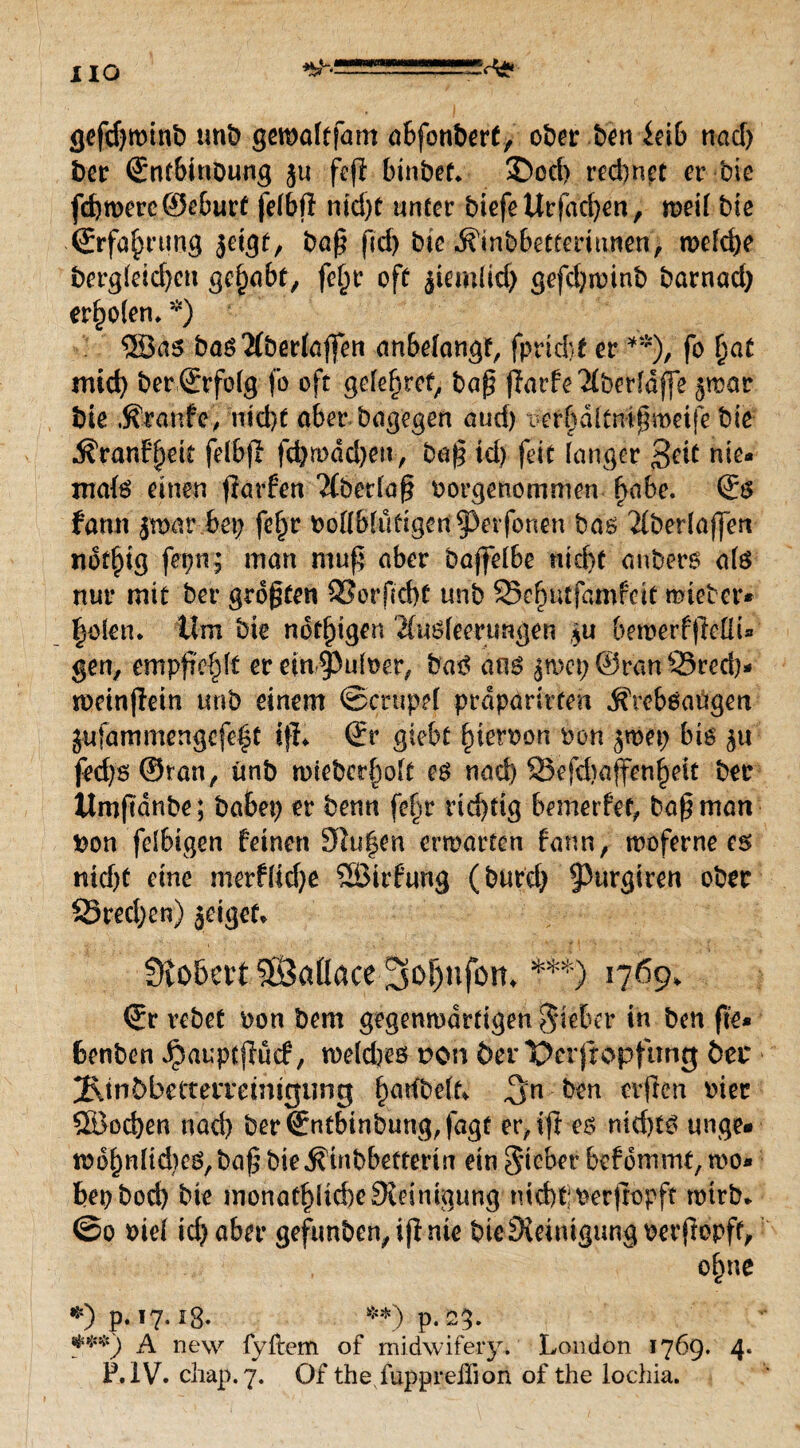 110
geschwind und gewaltsam absondert, oder den Leib nach
der Entbindung zu fest bindet. Doch rechnet er die
schwere Geburt selbst nicht unter diese Ursachen, weil die
Erfahrung zeigt, daß sich die Kindbetterinnen, welche
dergleichen gehabt, sehr oft ziemlich geschwind darnach
erholen. *)
Was das Aberlassen anbelangt, spricht er **), so hat
mich der Erfolg so oft gelehret, daß starke Aberlässe zwar
die Kranke, nicht aber dagegen auch verhältnißweise die
Krankheit selbst schwächen, daß ich seit langer Zeit nie-
mals einen starken Aberlaß vorgenommen habe. Es
kann zwar bey sehr vollblütigen Personen das Aberlassen
nöthig seyn; man muß aber dasselbe nicht anders als
nur mit der größten Vorsicht und Behutsamkeit wieder-
holen. Um die nöthigen Ausleerungen zu bewerkstelli-
gen, empfiehlt er ein Pulver, das aus zwey Gran Brech-
weinstein und einem Scrupel präparirten Krebsaugen
zusammengesetzt ist. Er giebt hiervon von zwey bis zu
sechs Gran, und wiederholt es nach Beschaffenheit der
Umstände; dabey er denn sehr richtig bemerket, daß man
von selbigen keinen Nutzen erwarten kann, woferne es
nicht eine merkliche Wirkung (durch Purgiren oder
Brechen) zeiget.
Robert Wallace Johnson. ***) 1769.
Er redet von dem gegenwärtigen Fieber in den sie-
benden Hauptstück, welches von der Verstopfung der
Kindbetterreinigung handelt. In den ersten vier
Wochen nach der Entbindung, sagt er, ist es nichts unge-
wöhnliches, daß die Kindbetterin ein Fieber bekömmt, wo-
bey doch die monathliche Reinigung nicht verstopft wird.
So viel ich aber gefunden, ist nie die Reinigung verstopft,
ohne
*) p. 17. 18. **) p. 23.
***) A new fyftem of midwifery. London 1769. 4.
P. IV. chap. 7. Of the fuppreffion of the lochia.